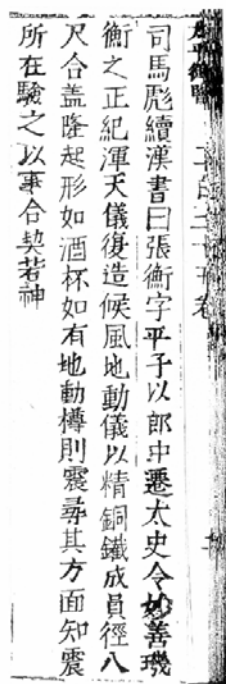 太平御覽二百三十五卷
司馬彪續漢書曰張衡字平子以郎中遷太史令妙善璣
衡之正紀渾天儀復造候風地動儀以精銅鐵成員徑八
尺合盖隆起形如酒杯如有地動樽則震尋其方面知震
所在驗之以事合契若神